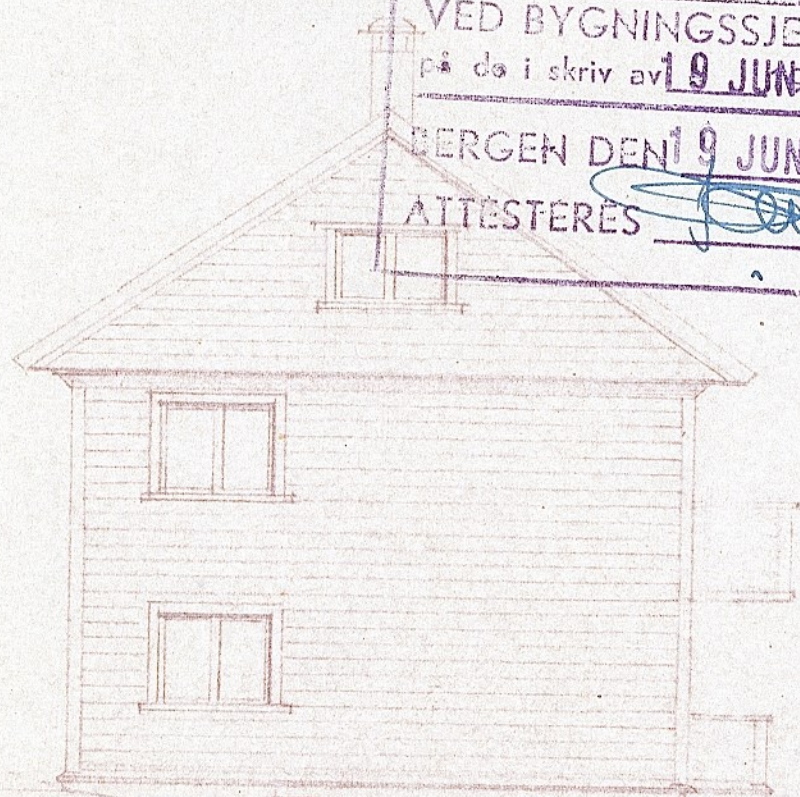 VED BYGNINGSSJE
på de i skriv av 19 JUN
BERGEN DEN 19 JUN
ATTESTERES